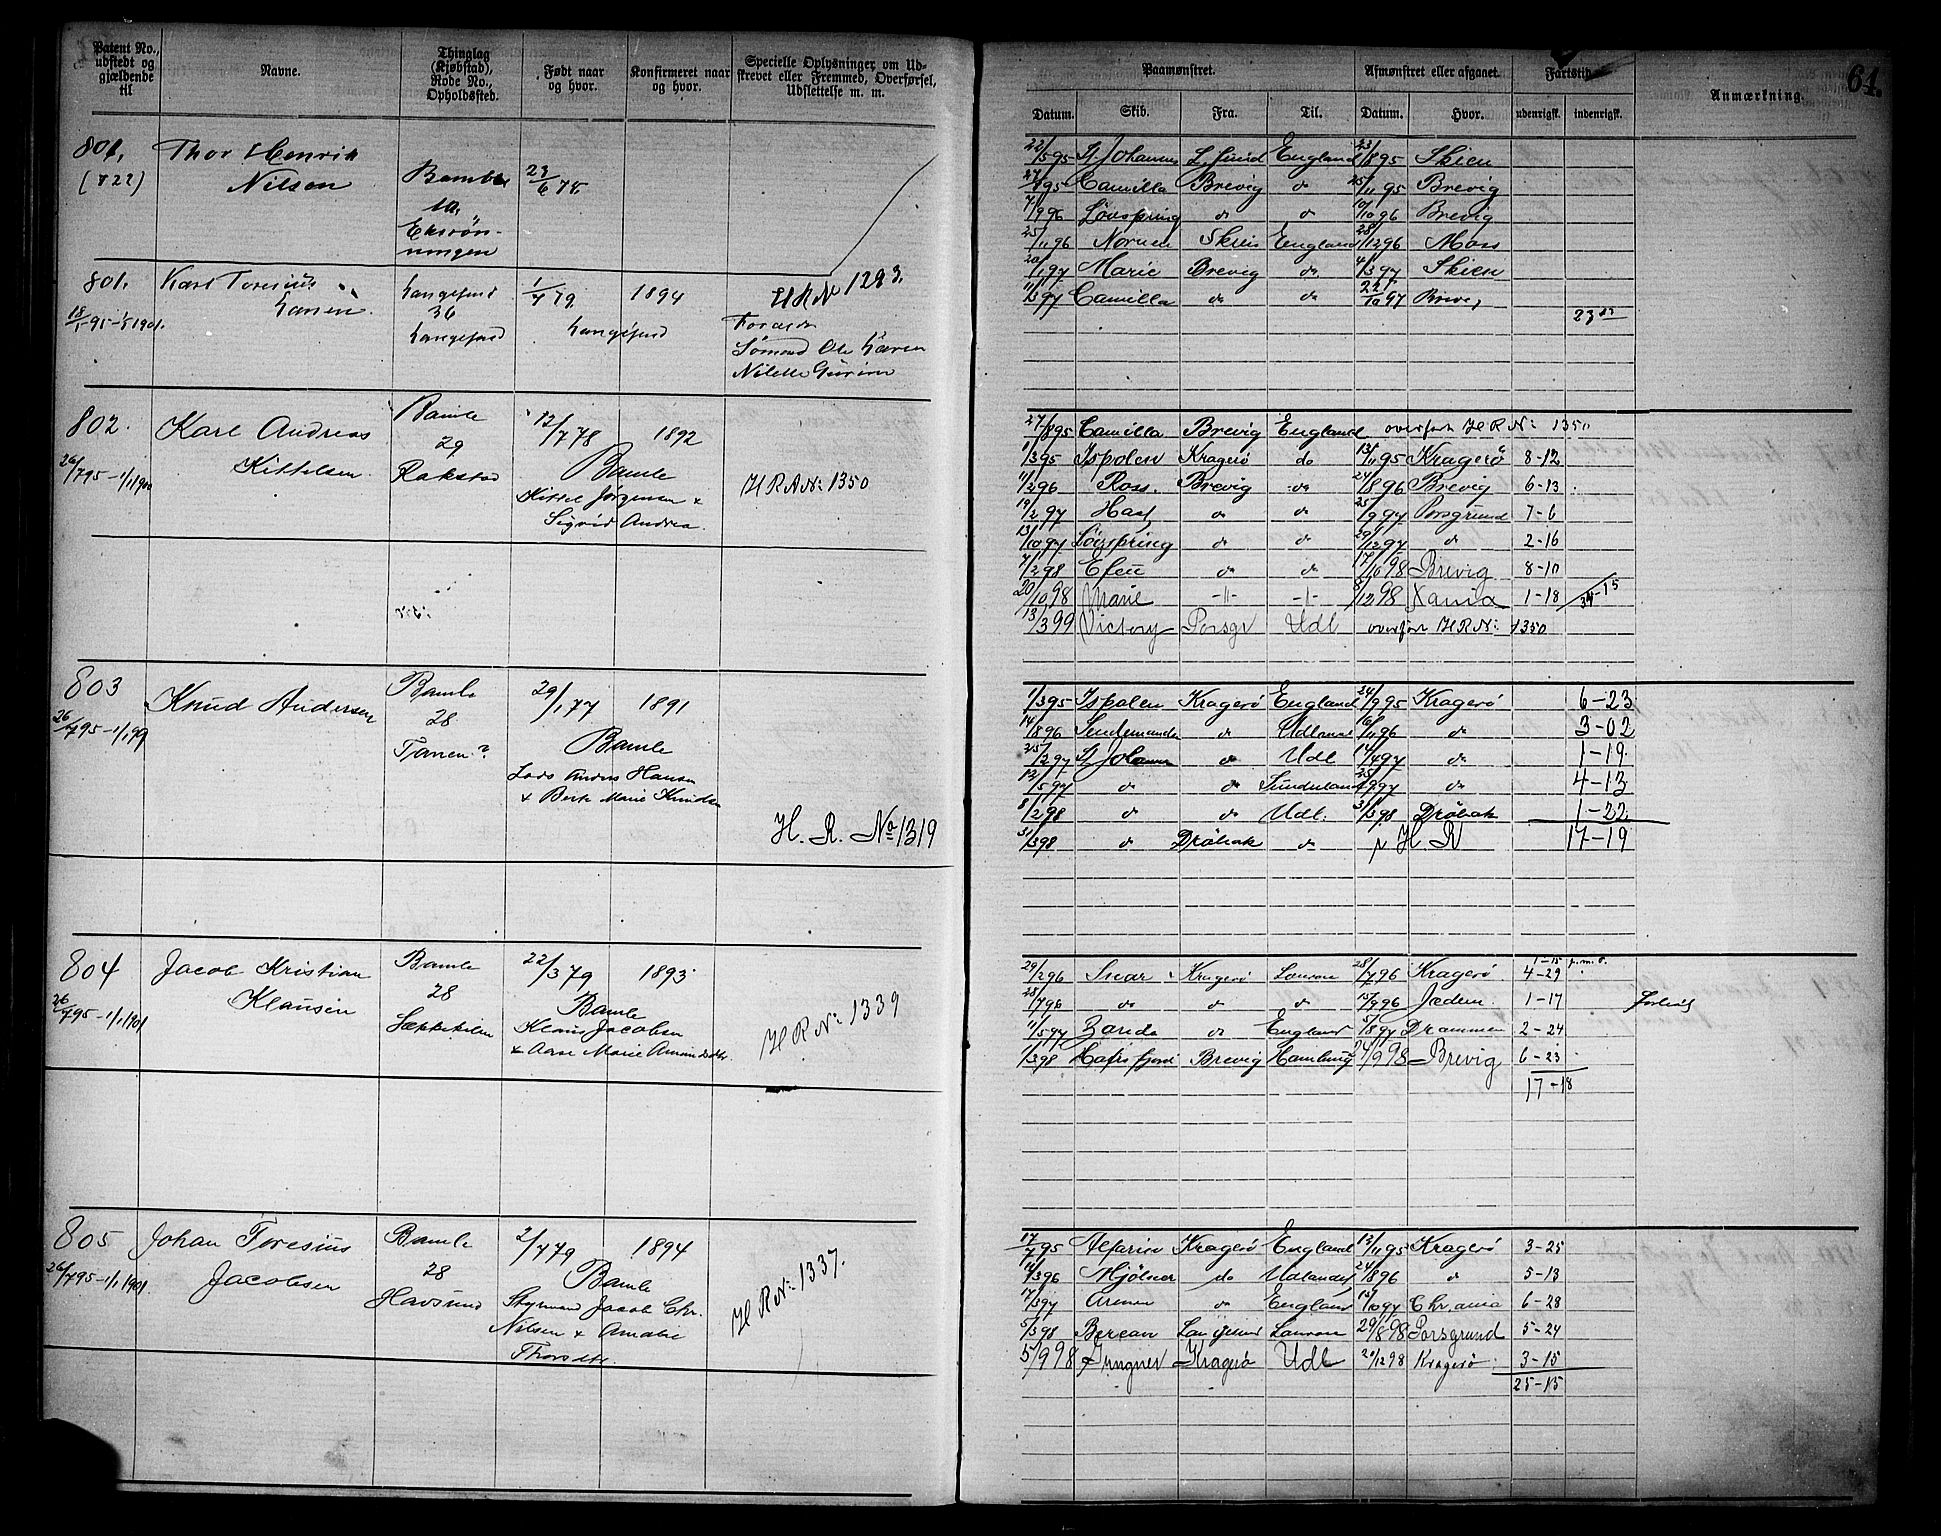 Patent No.,
udstedt og
gjældende
til
Navne.
Thinglag
(Kjøbstad),
Rode No.,
Opholdssted.
Født naar
og hvor.
Konfirmeret naar
og hvor.
Specielle Oplysninger om Ud-
skrevet eller Fremmed, Overførsel,
Udslettelse m. m.
801, Thor Henrik
(822) Nilsen Bamble 23/6 78
Langesund 1/7 79 1894 H R No 1283.
801. Karl Toresius
Larsen. 36
18/5 95 - 1/5 1901. Langesund Langesund Forældr
Sömand Ole Larsen
802. Karl Andreas Bamle 12/7 78 1892
Kittelsen. 29 Bamle
26/7 95-1/1 1900 Rakstad Kittel Jørgensen & H R A No: 1350
Sigrid Andrea.
803 Knud Andersen Bamle 29/1 77 1891
26/7 95-1/1 99 28 Bamle
Tanen? Lods Anders Hansen
& Berte Marie Knudsen
H. R. No 1319
804 Jacob Kristian Bamle 22/3 79 1893
Klausen 28 Bamle
26/7 95-1/1 1901 Klaus Jacobsen H R No: 1339
& Aase Marie Amundsdtr.
805 Johan Toresius Bamle 2/7 79 1894
Jacobsen 28 Bamle
26/7 95-1/1 1901 Havsund Styrmand Jacob Chr. H R No: 1337.
Nilsen & Amalie
Thorsdtr.
64.
Paamønstret. Afmønstret eller afgaaet. Fartstid. Anmærkning.
Datum. Skib. Fra. Til. Datum. Hvor. udenrigsk. indenrigsk.
22/5 95 St Johannes L. sund England 23/8 95 Skien
27/9 95 Camilla Brevig do 25/11 95 Brevig
7/9 96 Løvspring do do 10/10 96 Brevig
25/11 96 Nornen Skien England 28/12 96 Moss
20/1 97 Marie Brevig do 4/3 97 Skien
11/3 97 Camilla do do 22/10 97 Brevig
23
27/8 95 Camilla Brevig England overført H R No: 1350
1/3 95 Ispolen Kragerö do 13/11 95 Kragerö 8-12
11/2 96 Ross. Brevig do 24/8 96 Brevig 6-13
19/2 97 Hast do do 25/9 97 Porsgrund 7-6
13/10 97 Løvspring do do 29/12 97 do 2-16
7/2 98 Efeu do do 17/10 98 Brevig 8-10
20/10 98 Marie -"- -"- 8/12 98 Xania 1-18 34-15
13/3 99 Victory Porsgr Udl overført H R No: 1350
1/3 95 Ispolen Kragerö England 24/9 95 Kragerö 6-23
14/8 96 do Udland 16/11 96 do 3-02
25/2 97 St Johannes do Udl 14/4 97 do 1-19
12/5 97 do do Sunderland 25/9 97 do 4-13
8/2 98 do do Udl. 31/3 98 Dröbak 1-22
31/3 98 do Dröbak do H. R 17-19
1-15 p.m.o.
29/2 96 Snar Kragerö 28/7 96 Kragerö 4-29
28/7 96 do do do 15/9 96 Jædern. 1-17 Forlist
11/5 97 Zanda do England 5/8 97 Drammen 2-24
1/3 98 Hafrsfjord Brevig Hamburg 24/9 98 Brevig 6-23
17-18
17/7 95 Kragerö England 13/11 95 Kragerö 3-25
11/3 96 Mjölner do Udlandet 24/8 96 do 5-13
17/3 97 do England 15/10 97 Chr.ania 6-28
5/3 98 Langesund 29/8 98 Porsgrund 5-24
5/9 98 Kragerö Udl 20/12 98 Kragerö 3-15
25-15